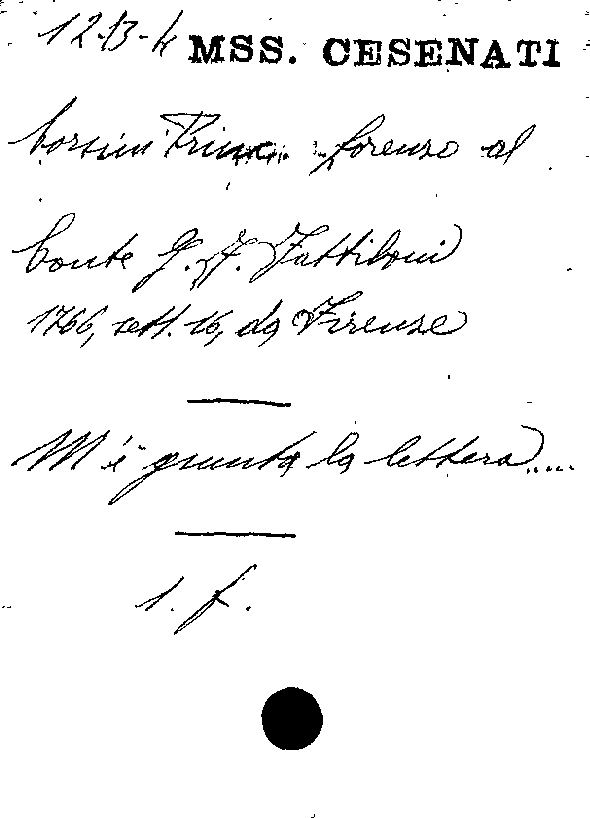 12-B-4 MSS. CESENATI
Corsini Princ. Lorenzo al
Conte G. F. Fattiboni
1766, sett. 16, da Firenze
M'è giunta la lettera.....
1. f.